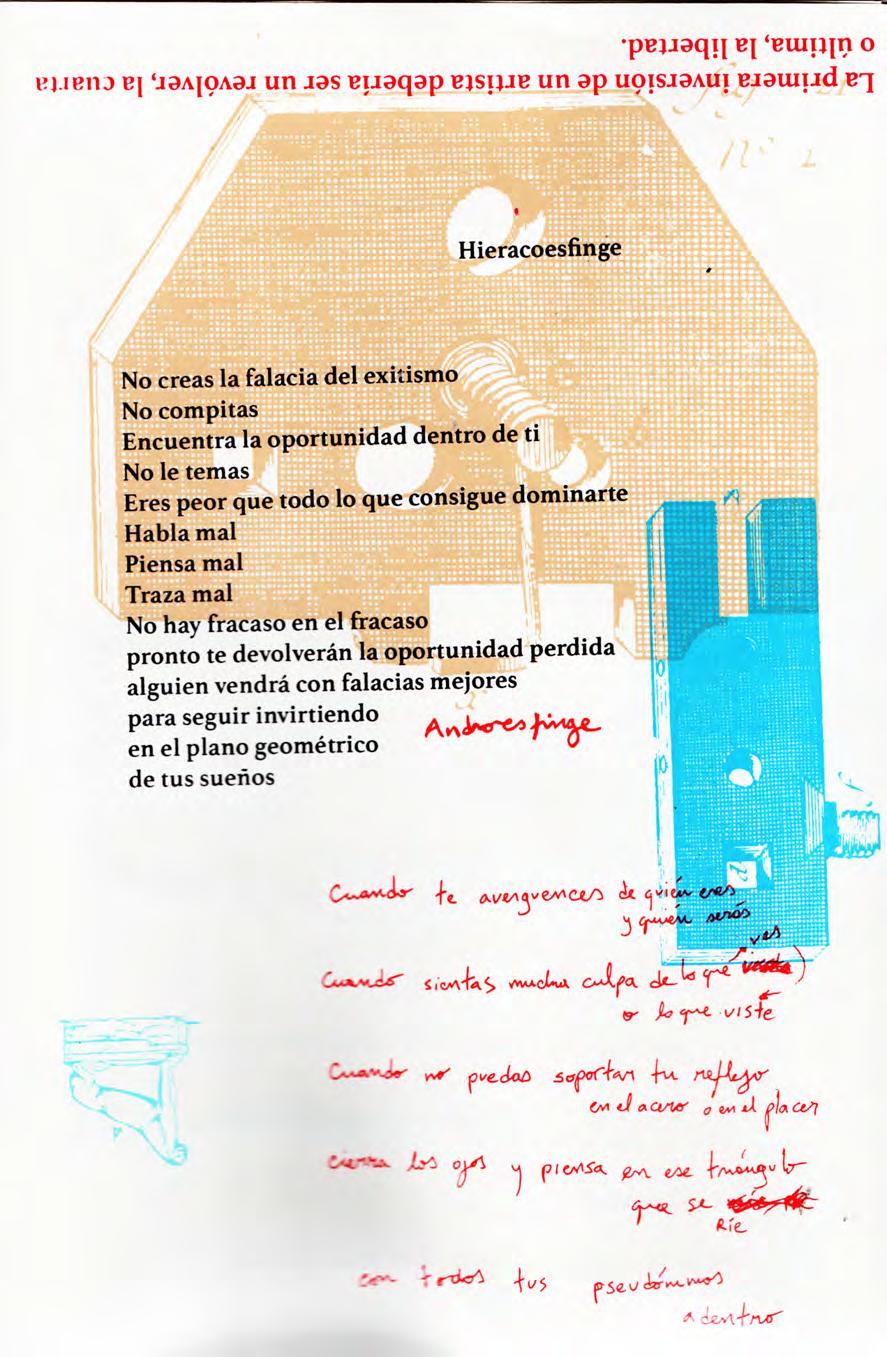 La primera inversión de un artista debería ser un revólver, la cuarta
o última, la libertad.
Nº 2
Hieracoesfinge
No creas la falacia del exitismo
No compitas
Encuentra la oportunidad dentro de ti
No le temas
Eres peor que todo lo que consigue dominarte
Habla mal
Piensa mal
Traza mal
No hay fracaso en el fracaso
pronto te devolverán la oportunidad perdida
alguien vendrá con falacias mejores
para seguir invirtiendo
en el plano geométrico
de tus sueños
Androesfinge
Cuando te averguences de quién eres
y quién serás
Cuando sientas mucha culpa de lo que ves
o lo que viste
Cuando no puedas soportar tu reflejo
en el acero o en el placer
cierra los ojos y piensa en ese triángulo
que se
Ríe
con todos tus pseudónimos
adentro